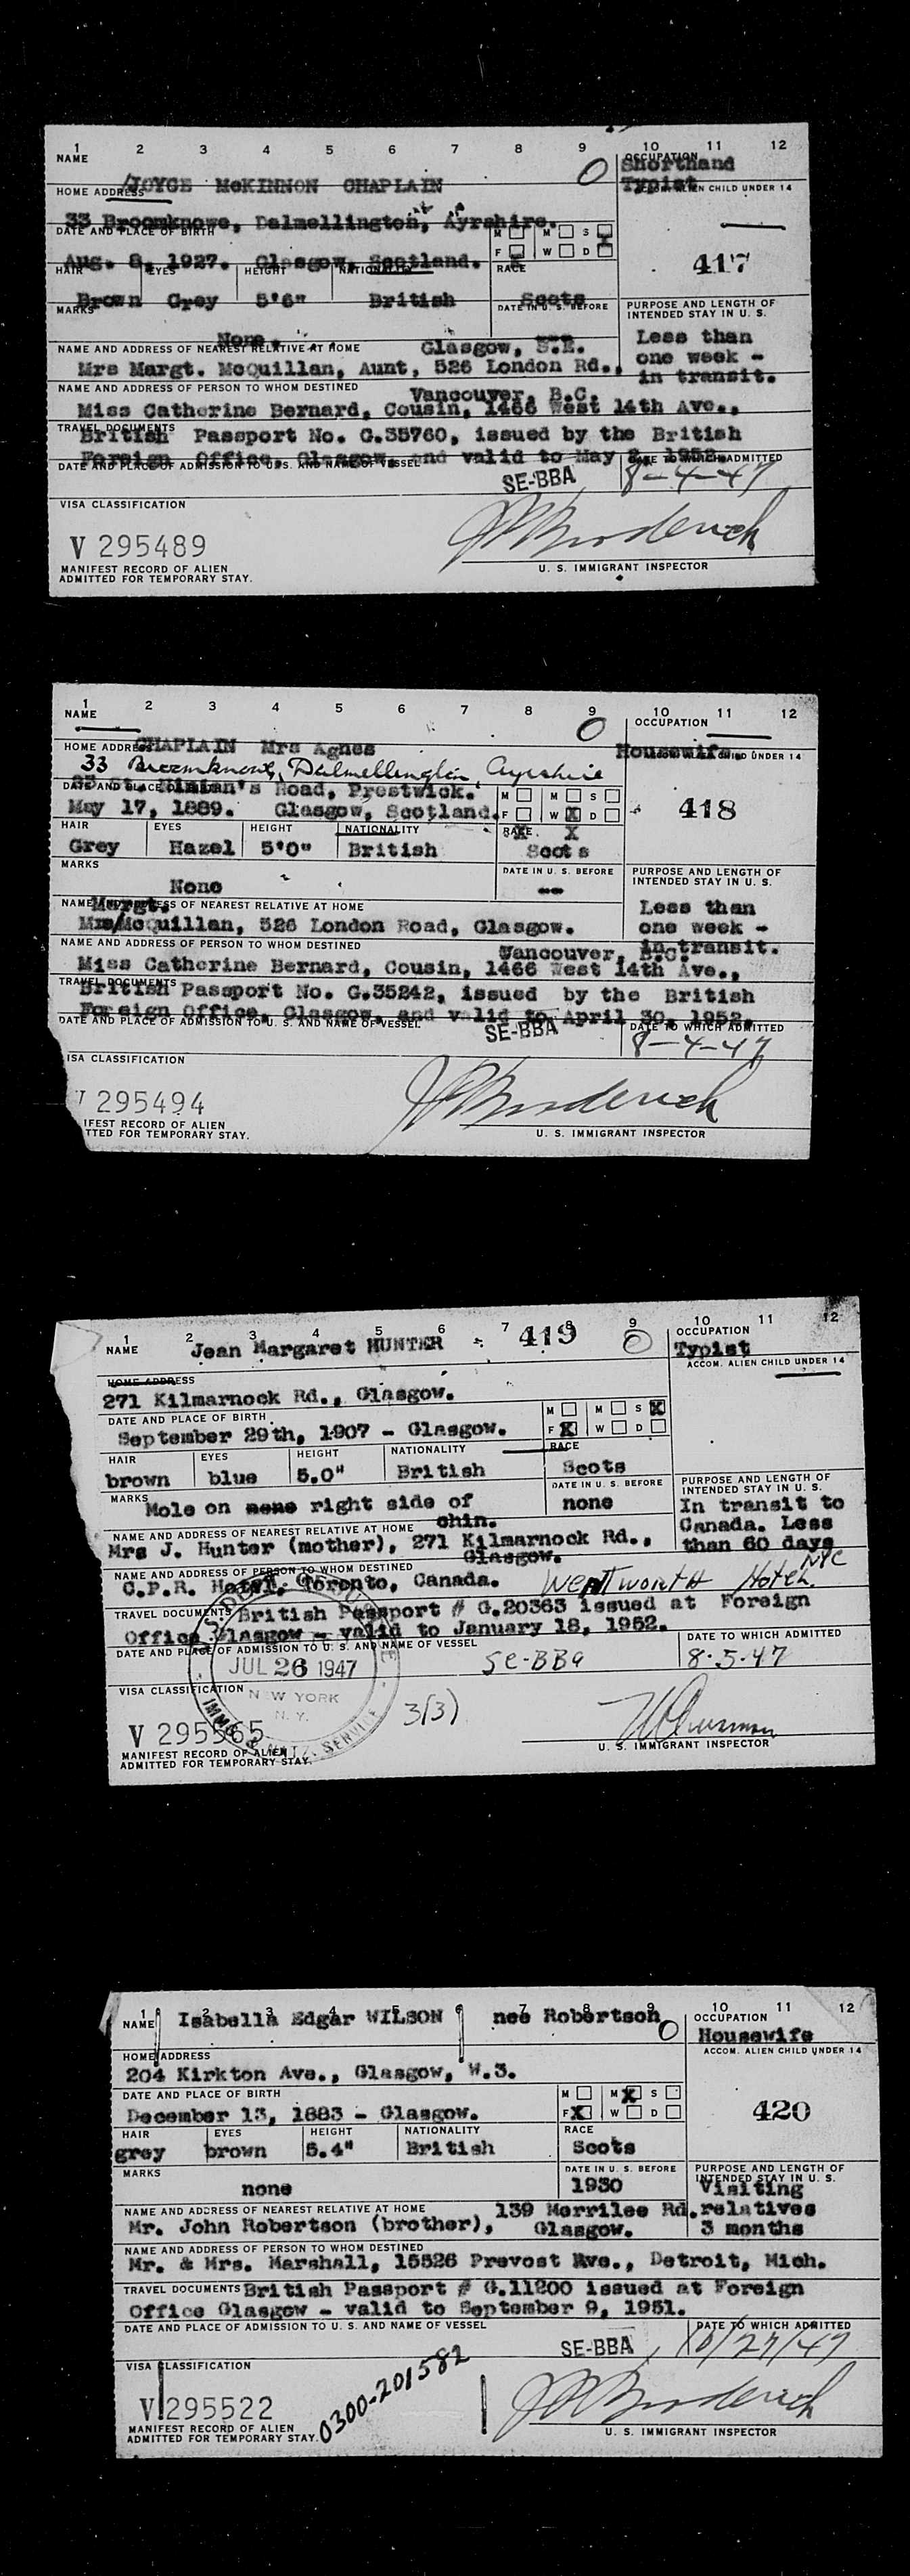 1 2 3 4 5 6 7 8 9 10 11 12
NAME
OCCUPATION
Shorthand
JOYCE McKINNON CHAPLAIN
Typist
HOME ADDRESS
ALIEN CHILD UNDER 14
33 Broomknowe, Dalmellington, Ayrshire.
DATE AND PLACE OF BIRTH
M M S
F W D
Aug. 8, 1927. Glasgow, Scotland.
417
HAIR EYES HEIGHT NATIONALITY RACE
Brown Grey 5'6" British Scots
MARKS
DATE IN U. S. BEFORE
PURPOSE AND LENGTH OF
INTENDED STAY IN U. S.
None.
Less than
one week -
in transit.
NAME AND ADDRESS OF NEAREST RELATIVE AT HOME
Glasgow, S.E.
Mrs Margt. McQuillan, Aunt, 526 London Rd.,
NAME AND ADDRESS OF PERSON TO WHOM DESTINED
Vancouver, B.C.
Miss Catherine Bernard, Cousin, 1466 West 14th Ave.,
TRAVEL DOCUMENTS
British Passport No. G.35760, issued by the British
Foreign Office, Glasgow, and valid to May 2, 1952.
DATE AND PLACE OF ADMISSION TO U.S. AND NAME OF VESSEL
DATE TO WHICH ADMITTED
SE-BBA
8-4-47
VISA CLASSIFICATION
V 295489
MANIFEST RECORD OF ALIEN
ADMITTED FOR TEMPORARY STAY.
U. S. IMMIGRANT INSPECTOR
1 2 3 4 5 6 7 8 9 10 11 12
NAME
OCCUPATION
CHAPLAIN Mrs Agnes
Housewife
HOME ADDRESS
CHILD UNDER 14
33 Broomknowe, Dalmellington, Ayrshire
Road, Prestwick.
DATE AND PLACE
M M S
F W X D
May 17, 1889. Glasgow, Scotland.
418
HAIR EYES HEIGHT NATIONALITY RACE
Grey Hazel 5'0" British Scots
MARKS
DATE IN U. S. BEFORE
PURPOSE AND LENGTH OF
INTENDED STAY IN U. S.
None
--
Less than
one week -
in transit.
NAME AND ADDRESS OF NEAREST RELATIVE AT HOME
Margt.
Mrs/McQuillan, 526 London Road, Glasgow.
NAME AND ADDRESS OF PERSON TO WHOM DESTINED
Vancouver, B.C.
Miss Catherine Bernard, Cousin, 1466 West 14th Ave.,
TRAVEL DOCUMENTS
British Passport No. G.35242, issued by the British
Foreign Office, Glasgow, and valid to April 30, 1952.
DATE AND PLACE OF ADMISSION TO U. S. AND NAME OF VESSEL
DATE TO WHICH ADMITTED
SE-BBA
8-4-47
ISA CLASSIFICATION
295494
IFEST RECORD OF ALIEN
TTED FOR TEMPORARY STAY.
U. S. IMMIGRANT INSPECTOR
1 2 3 4 5 6 7 8 9 10 11 12
NAME
Jean Margaret HUNTER
419
OCCUPATION
Typist
ACCOM. ALIEN CHILD UNDER 14
HOME ADDRESS
271 Kilmarnock Rd., Glasgow.
DATE AND PLACE OF BIRTH
M M S X
F X W D
September 29th, 1907 - Glasgow.
HAIR EYES HEIGHT NATIONALITY RACE
brown blue 5.0" British Scots
MARKS
DATE IN U. S. BEFORE
PURPOSE AND LENGTH OF
INTENDED STAY IN U. S.
Mole on right side of
chin.
none
In transit to
Canada. Less
than 60 days
NAME AND ADDRESS OF NEAREST RELATIVE AT HOME
Mrs J. Hunter (mother), 271 Kilmarnock Rd.,
Glasgow.
NAME AND ADDRESS OF PERSON TO WHOM DESTINED
C.P.R. Hotel, Toronto, Canada.
Wentworth Hotel. NYC
TRAVEL DOCUMENTS
British Passport # G.20363 issued at Foreign
Office Glasgow - valid to January 18, 1952.
DATE AND PLACE OF ADMISSION TO U. S. AND NAME OF VESSEL
DATE TO WHICH ADMITTED
JUL 26 1947
NEW YORK
N. Y.
SERVICE
SE-BBA
8-5-47
VISA CLASSIFICATION
3(3)
V 295565
MANIFEST RECORD OF ALIEN
ADMITTED FOR TEMPORARY STAY.
U. S. IMMIGRANT INSPECTOR
1 2 3 4 5 6 7 8 9 10 11 12
NAME
Isabella Edgar WILSON nee Robertson
OCCUPATION
Housewife
ACCOM. ALIEN CHILD UNDER 14
HOME ADDRESS
204 Kirkton Ave., Glasgow, W.3.
DATE AND PLACE OF BIRTH
M M X S
F X W D
December 13, 1883 - Glasgow.
420
HAIR EYES HEIGHT NATIONALITY RACE
grey brown 5.4" British Scots
MARKS
DATE IN U. S. BEFORE
PURPOSE AND LENGTH OF
INTENDED STAY IN U. S.
none
1930
Visiting
relatives
3 months
NAME AND ADDRESS OF NEAREST RELATIVE AT HOME
139 Merrilee Rd.
Mr. John Robertson (brother), Glasgow.
NAME AND ADDRESS OF PERSON TO WHOM DESTINED
Mr. & Mrs. Marshall, 15526 Prevost Ave., Detroit, Mich.
TRAVEL DOCUMENTS
British Passport # G.11200 issued at Foreign
Office Glasgow - valid to September 9, 1951.
DATE AND PLACE OF ADMISSION TO U. S. AND NAME OF VESSEL
DATE TO WHICH ADMITTED
SE-BBA
10/27/47
VISA CLASSIFICATION
0300-201582
V 295522
MANIFEST RECORD OF ALIEN
ADMITTED FOR TEMPORARY STAY.
U. S. IMMIGRANT INSPECTOR